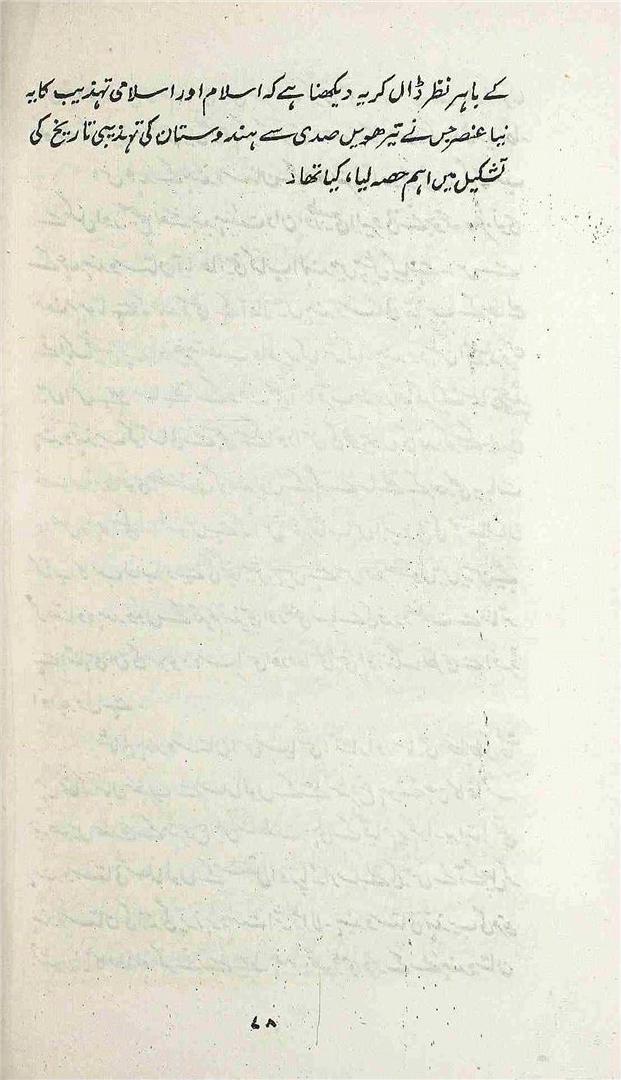 کے باہر نظر ڈال کر یہ دیکھنا ہے کہ اسلام اور اسلامی تہذیب کا یہ
نیا عنصر جس نے تیرھویں صدی سے ہندوستان کی تہذیبی تاریخ کی
تشکیل میں اہم حصہ لیا، کیا تھا۔
۷۸